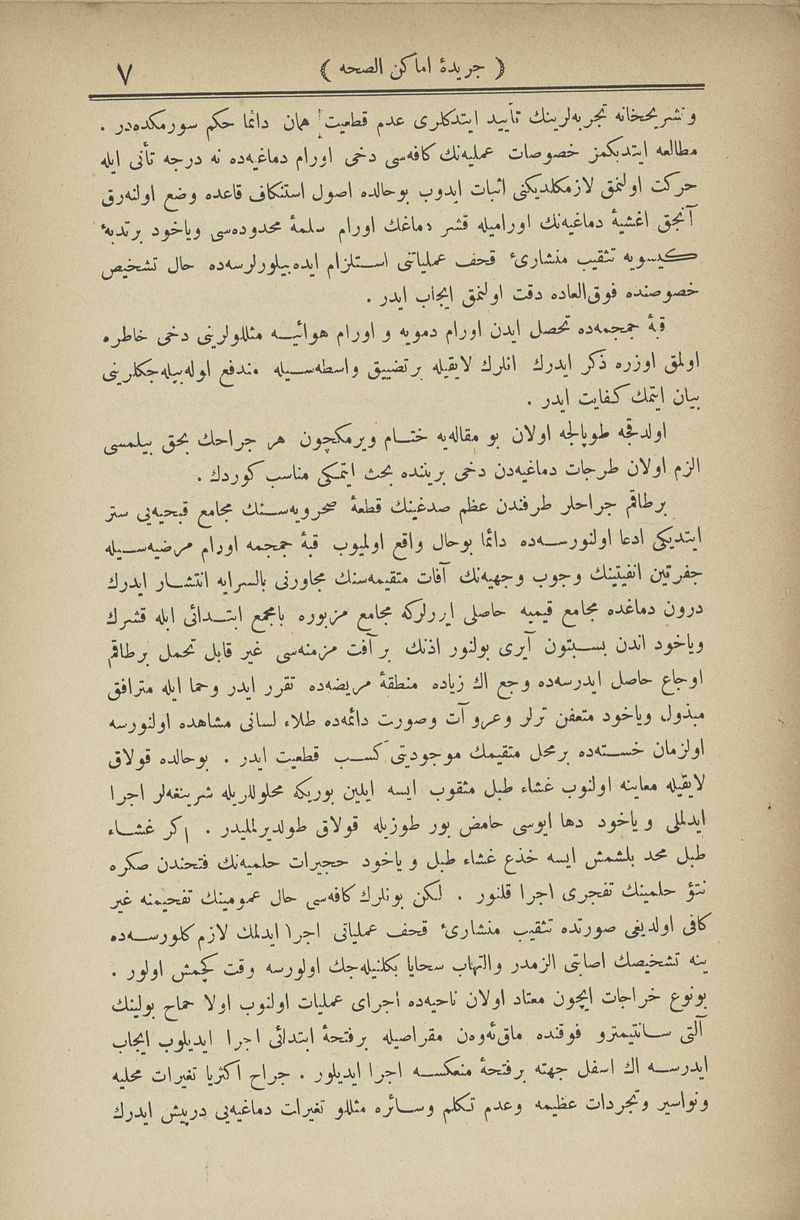 ( جریدۀ اماکن الصحه ) ٧
وتشریحخانه تجربه‌لرینك تأیید ایتدكلری عدم قطعیت همان دائما حكم سورمكده‌در .
مطالعه ایتدیكمز خصوصات عملیه‌نك كافه‌سی دخی اورام دماغیه‌ده نه درجه تأنی ایله
حركت اولنمق لازمكلدیكنی اثبات ایدوب بوحالده اصول استنكاف قاعده وضع اولنه‌رق
آنجق اغشیۀ دماغیه‌نك اورامیله قشر دماغك اورام سلمۀ محدوده‌سی ویاخود برتدبۀ
كیسویه تثقیب منشارئ قحف عملیاتنی استلزام ایده‌بیلورلرسه‌ده حال تشخیص
خصوصنده فوق‌العاده دقت اولنمق ایجاب ایدر .
قبۀ جمجمه‌ده تحصل ایدن اورام دمویه و اورام هوائیه مثللولرینی دخی خاطره
اولمق اوزره ذكر ایدرك انلرك لایقیله برتضییق واسطه‌سیله مندفع اوله‌بیله‌جكلرینی
بیان ایتمك كفایت ایدر .
اولدقجه طوپالجه اولان بو مقاله‌یه ختام ویرمكچون هر جراحك بحق بیلمسی
الزم اولان طرجات دماغیه‌دن دخی بریننده بحث ایتمكی مناسب كوردك .
برطاقم جراحلر طرفندن عظم صدغینك قطعۀ صحرویه‌سنك مجامع قبحیه‌یی ستر
ایتدیكی ادعا اولنورسه‌ده دائما بوحال واقع اولمیوب قبۀ جمجمه اورام مرضیه‌سیله
جفرتین انفیتینك وجوب وجهیه‌نك آفات متقیمه‌سنك مجاورنی بالسرایه انتشار ایدرك
درون دماغده مجامع قیمیه حاصلی ایررلركه مجامع مزبوره بامجمع ابتدائی ایله قشرك
ویاخود اندن بسبتون آیری بولنور اذنك بر آفت مزمنه‌سی غیر قابل تحمل برطاقم
اوجاع حاصل ایدرسه‌ده وجع اك زیاده منطقۀ مریضه‌ده تقرر ایدر وحما ایله مترافق
مبذول ویاخود متعفن ترلر وعروآت وصورت دائمه‌ده طلاء لسانی مشاهده اولنورسه
اولزمان خسته‌ده برمحل متقیمك موجودیتی كسب قطعیت ایدر . بوحالده قولاق
لایقیله معاینه اولنوب غشاء طبل مثقوب ایسه ایلین بوریكه محلوللریله شرینغه‌لر اجرا
ایدلملی ویاخود دها ایوسی حامض بور طوزیله قولاق طولدیرلملیدر . اكر غشاء
طبل محد بلشمش ایسه خذع غشاء طبل ویاخود حجیرات حلمیه‌نك فتحندن صكره
نتؤ حلمینك تفجری اجرا قلنور . لكن بونلرك كافه‌سی حال عمومینك تفحیمنه غیر
كافی اولدیغی صورتده تثقیب منشارئ قحف عملیاتی اجرا ایدلمك لازم كلورسه‌ده
ینه تشخیصك اصابتی الزمدر والتهاب سحایا بكلنیله‌جك اولورسه وقت كچمش اولور .
بونوع خراجات ایچون معتاد اولان ناحیه‌ده اجرای عملیات اولنوب اولا حماح بولینك
آلتی سانتیمترو فوقنده ماق‌ئه‌وه‌ن مقراصیله برفتحۀ ابتدائی اجرا ایدیلوب ایجاب
ایدرسه اك اسفل جهته برفتحۀ منعكسه اجرا ایدیلور . جراح اكثریا تغیرات محلیه
ونواسیر وتجردات عظیمه وعدم تكلم وسائره مثللو تغیرات دماغیه‌یی درپیش ایدرك